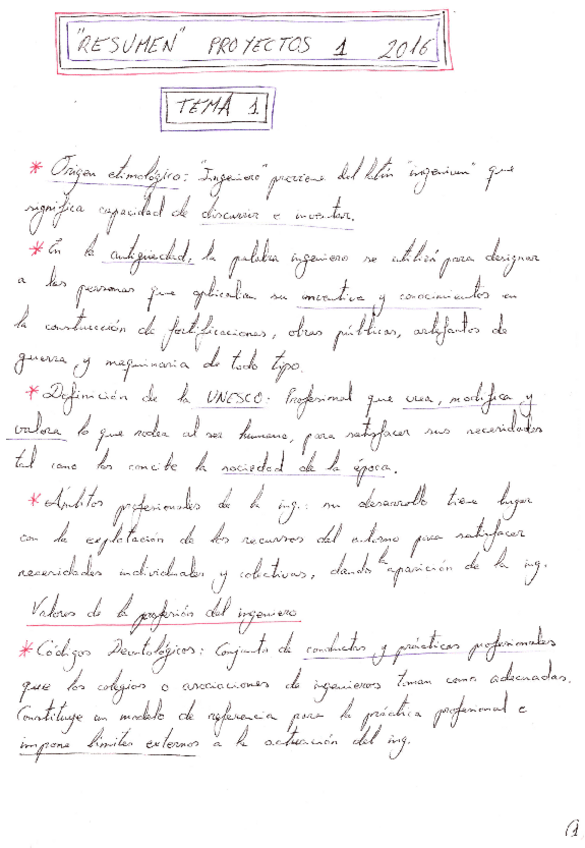 "RESUMEN" PROYECTOS 1 2016
TEMA 1
* Origen etimológico: "Ingeniero" proviene del latín "ingenium" que
significa capacidad de discurrir e inventar.
* En la antigüedad, la palabra ingeniero se utilizó para designar
a las personas que aplicaban su inventiva y conocimientos en
la construcción de fortificaciones, obras públicas, artefactos de
guerra y maquinaria de todo tipo.
* Definición de la UNESCO: Profesional que crea, modifica y
valora lo que rodea al ser humano, para satisfacer sus necesidades
tal como las concibe la sociedad de la época.
* Ámbitos profesionales de la ing.: su desarrollo tiene lugar
con la explotación de los recursos del mismo para satisfacer
necesidades individuales y colectivas, dando la aparición de la ing.
Valores de la profesión del ingeniero
* Códigos Deontológicos: Conjunto de conductas y prácticas profesionales
que los colegios o asociaciones de ingenieros toman como adecuadas.
Constituye un modelo de referencia para la práctica profesional e
impone límites externos a la actuación del ing.
1